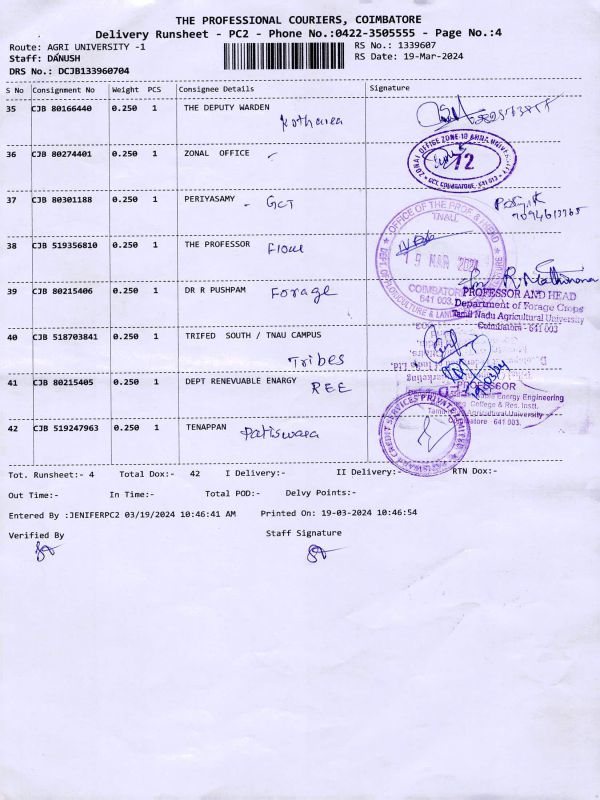 THE PROFESSIONAL COURIERS, COIMBATORE
Delivery Runsheet - PC2 - Phone No.:0422-3505555 - Page No.:4
Route: AGRI UNIVERSITY -1 RS No.: 1339607
Staff: DANUSH RS Date: 19-Mar-2024
DRS No.: DCJB133960704
S No Consignment No Weight PCS Consignee Details Signature
35 CJB 80166440 0.250 1 THE DEPUTY WARDEN
36 CJB 80274401 0.250 1 ZONAL OFFICE
ZONAL OFFICE ZONE-10 ANNA UNIVER
72
COIMBATORE. 641 013
37 CJB 80301188 0.250 1 PERIYASAMY - GCT
38 CJB 519356810 0.250 1 THE PROFESSOR
OFFICE OF THE PROF. & HEAD
TNAU
19 MAR 2024
COIMBATORE
641 003.
39 CJB 80215406 0.250 1 DR R PUSHPAM Forage
PROFESSOR AND HEAD
Department of Forage Crops
Tamil Nadu Agricultural University
Coimbatore - 641 003
40 CJB 518703841 0.250 1 TRIFED SOUTH / TNAU CAMPUS
Tribes
41 CJB 80215405 0.250 1 DEPT RENEVUABLE ENARGY REE
PROFESSOR
Energy Engineering
College & Res. Instt.
Agricultural University
641 003.
42 CJB 519247963 0.250 1 TENAPPAN
CREDIT SERVICES PRIVATE LIMITED
Tot. Runsheet:- 4 Total Dox:- 42 I Delivery:- II Delivery:- RTN Dox:-
Out Time:- In Time:- Total POD:- Delvy Points:-
Entered By :JENIFERPC2 03/19/2024 10:46:41 AM Printed On: 19-03-2024 10:46:54
Verified By Staff Signature